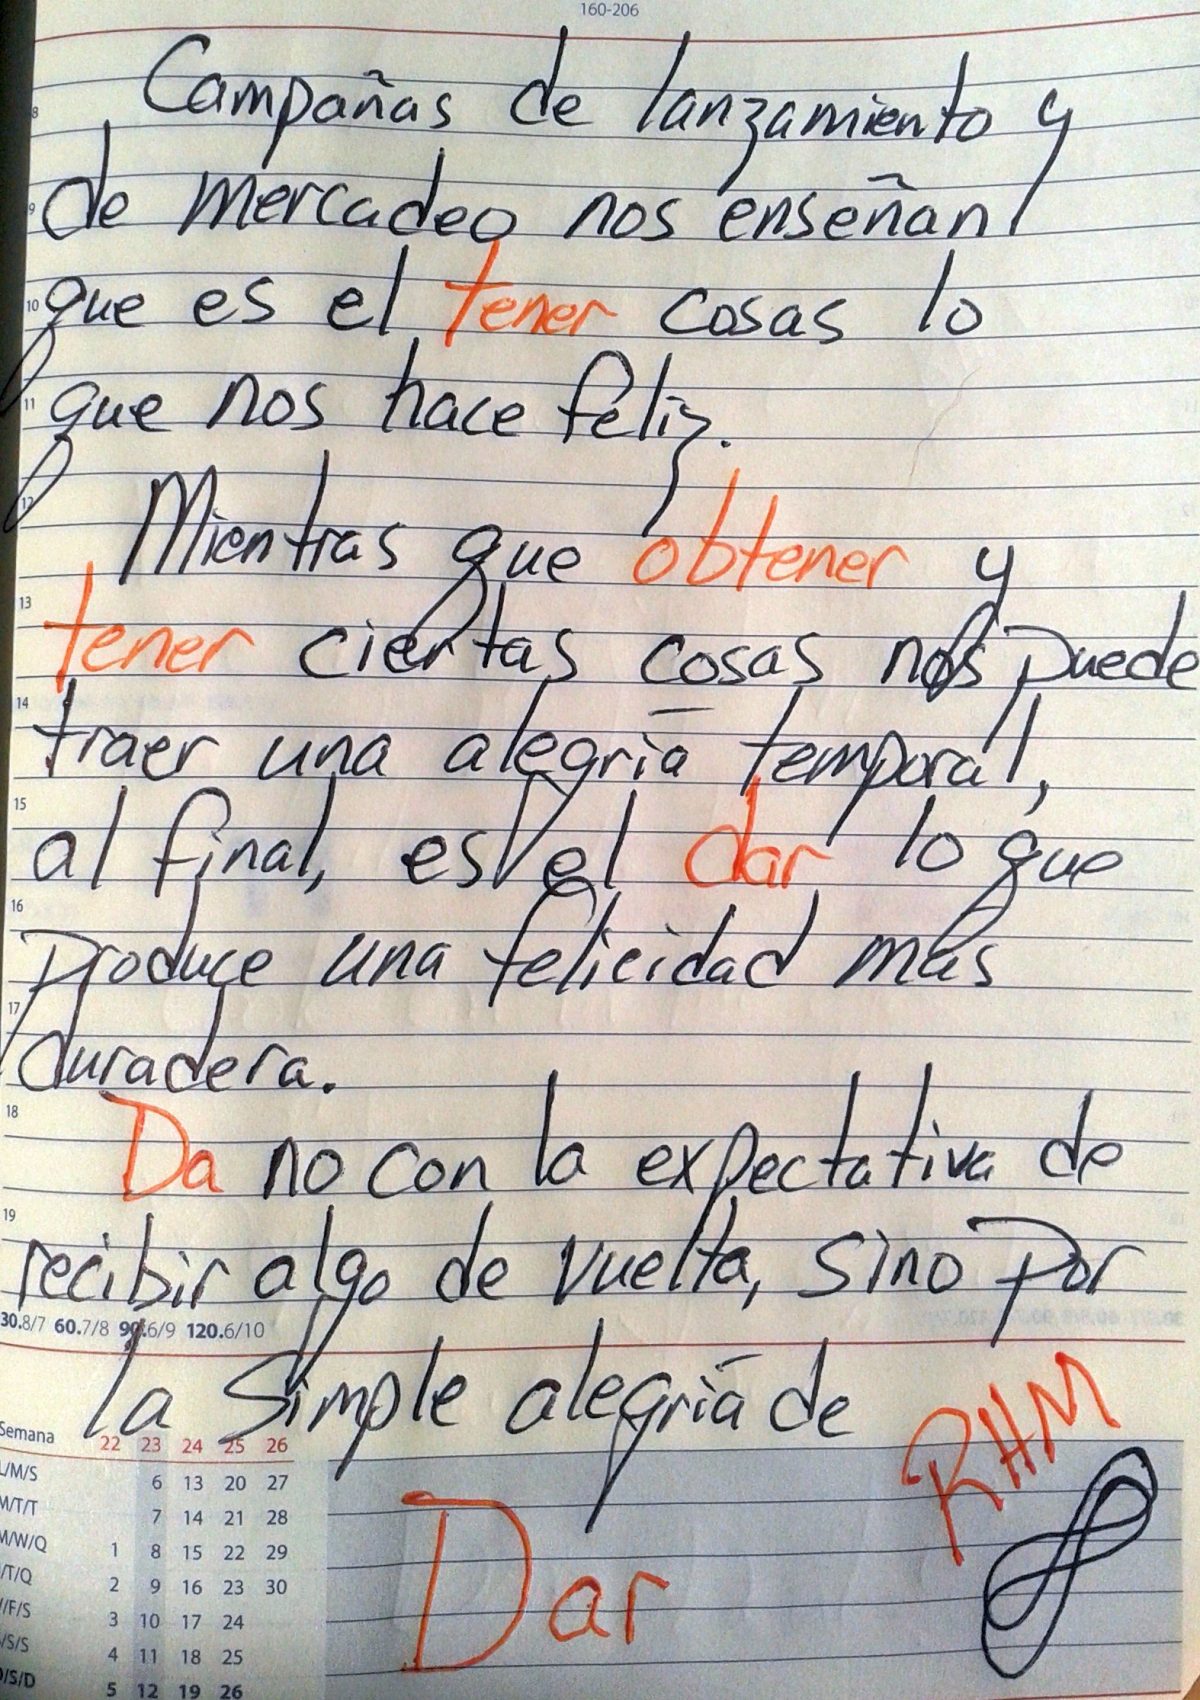 160-206
8
Campañas de lanzamiento y
9
de mercadeo nos enseñan
10
que es el tener cosas lo
11
que nos hace feliz.
12
Mientras que obtener y
13
tener ciertas cosas nos puede
14
traer una alegría temporal,
15
al final, es el dar lo que
16
produce una felicidad más
17
duradera.
18
Da no con la expectativa de
19
recibir algo de vuelta, sino por
30.8/7 60.7/8 90.6/9 120.6/10
la simple alegría de
RHM
Dar
Semana 22 23 24 25 26
L/M/S 6 13 20 27
M/T/T 7 14 21 28
M/W/Q 1 8 15 22 29
/T/Q 2 9 16 23 30
/F/S 3 10 17 24
/S/S 4 11 18 25
/S/D 5 12 19 26